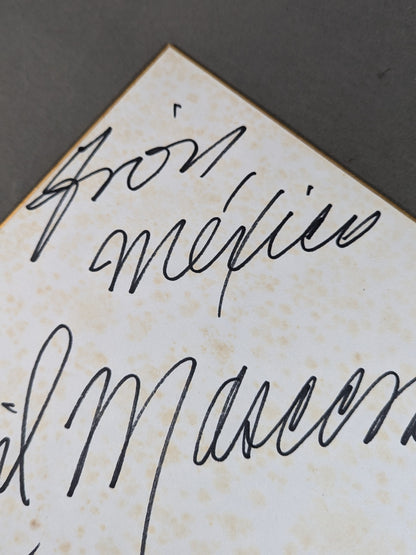 From
México
il Mascar